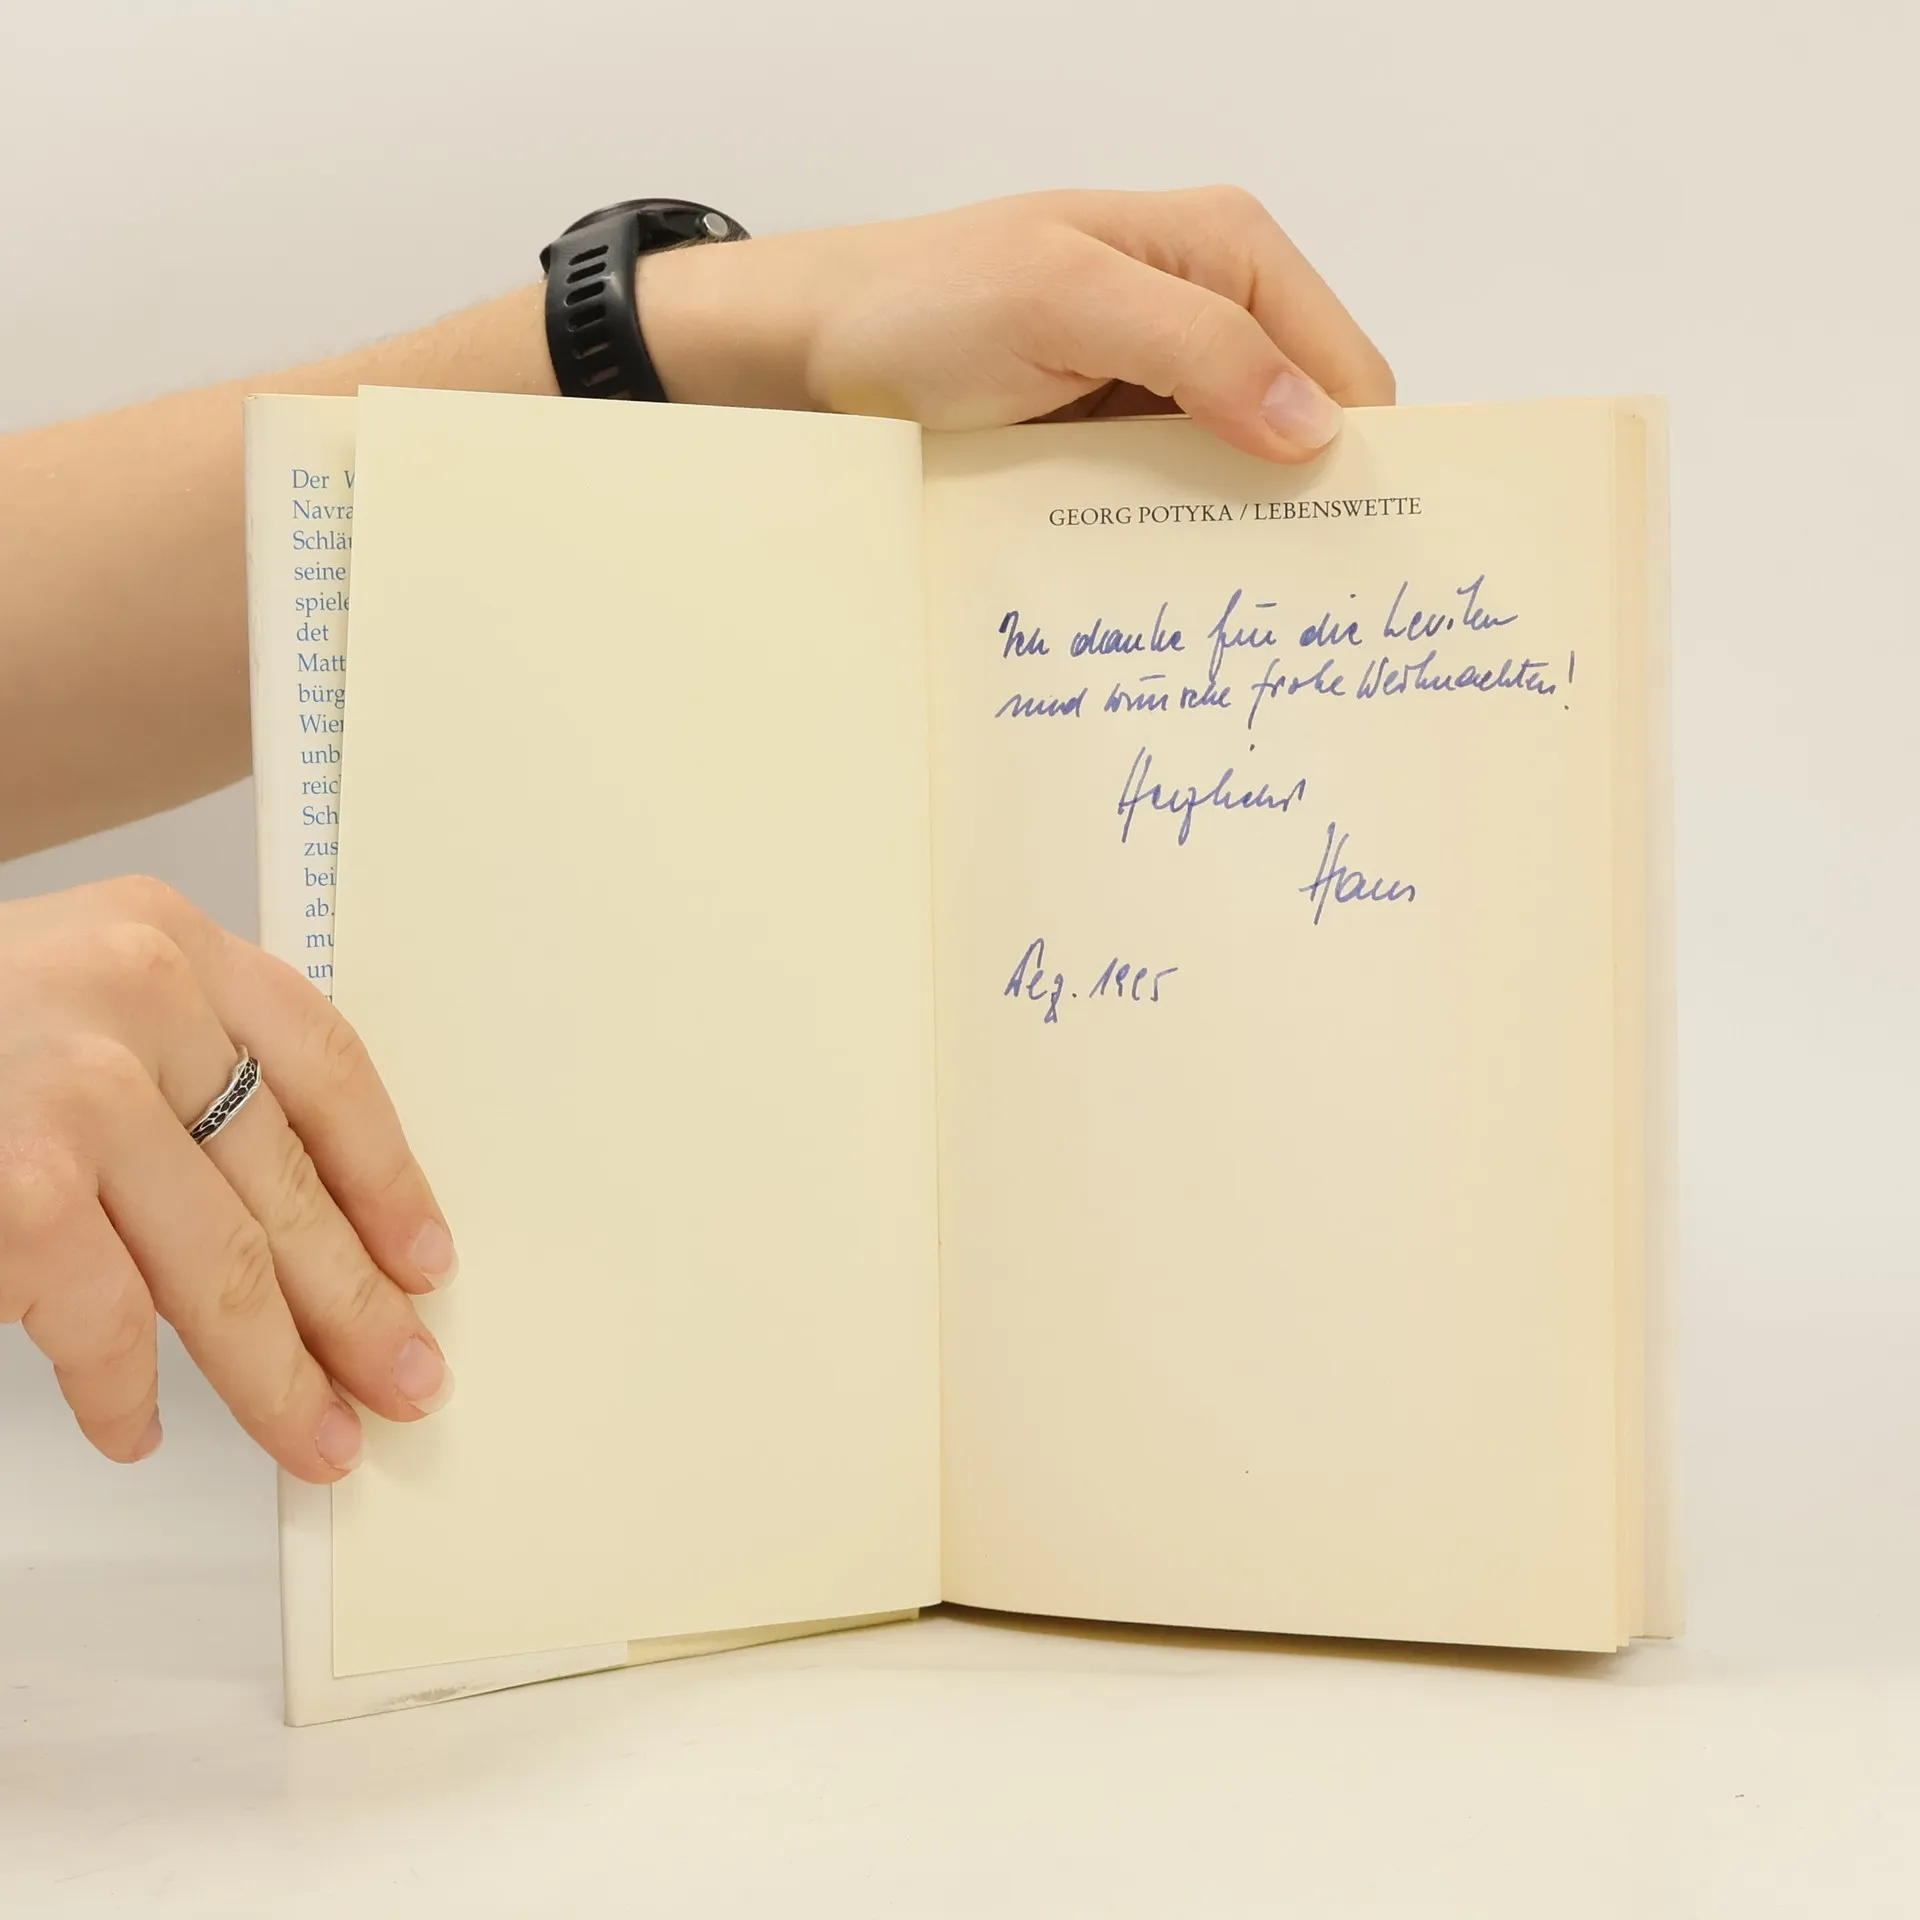 Der
Navra
Schläu
seine
spiele
det
Matt
bürg
Wien
unb
reic
Sch
zus
bei
ab.
mu
un
GEORG POTYKA / LEBENSWETTE
Ich danke für die Leviten
und wünsche frohe Weihnachten!
Herzlichst
Hans
Dez. 1995